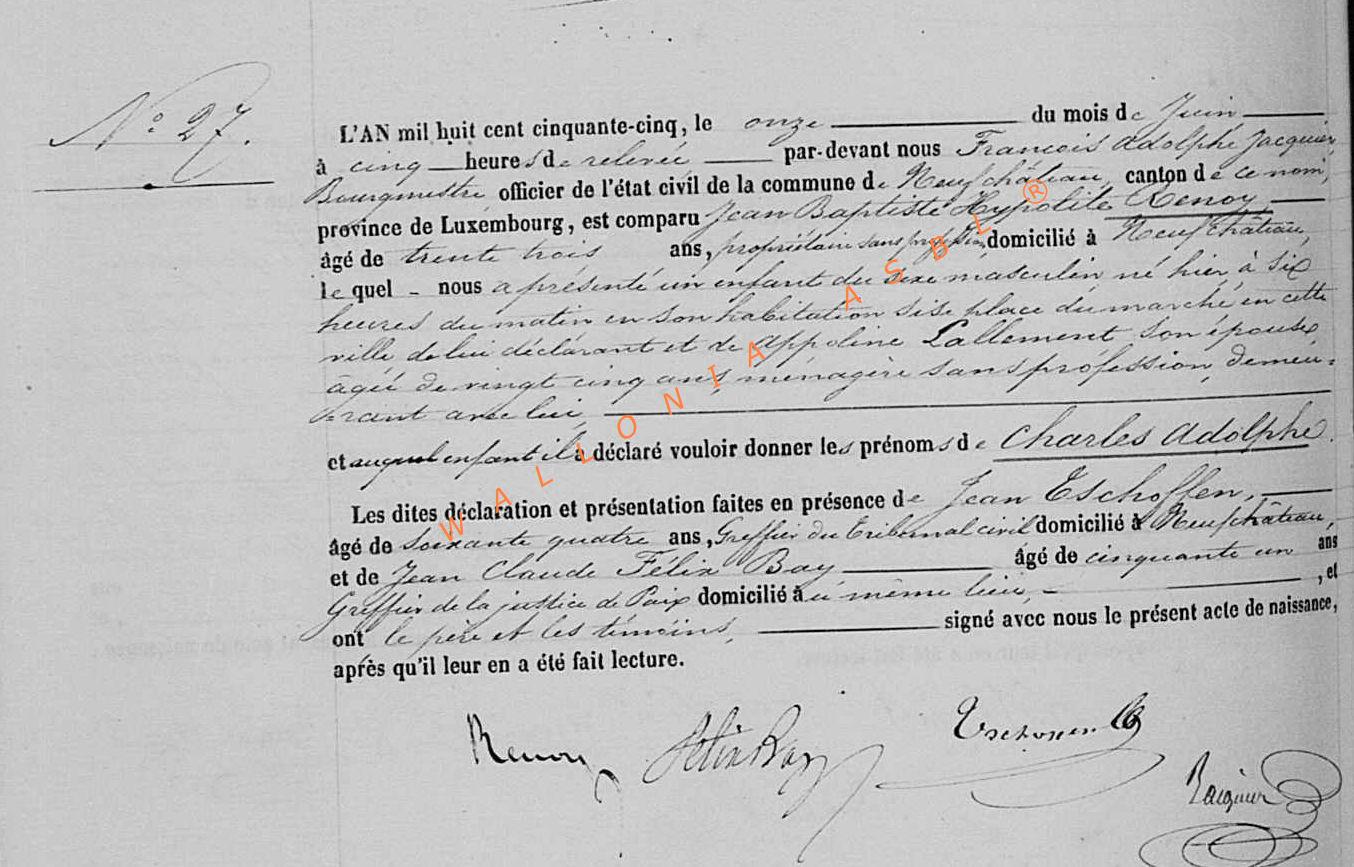 N° 27.
L'AN mil huit cent cinquante-cinq, le onze du mois de Juin
à cinq heures de relevée par-devant nous François Adolphe Jacquier,
Bourgmestre officier de l'état civil de la commune de Neufchâteau, canton de ce nom,
province de Luxembourg, est comparu Jean Baptiste Hypolite Renoy,
âgé de trente trois ans, propriétaire sans profession, domicilié à Neufchâteau,
le quel nous a présenté un enfant du sexe masculin né hier à six
heures du matin en son habitation sise place du marché en cette
ville de lui déclarant et de Appoline Lallement son épouse
âgée de vingt cinq ans, ménagère sans profession, demeu-
rant avec lui,
et auquel enfant il a déclaré vouloir donner les prénoms de Charles Adolphe.
Les dites déclaration et présentation faites en présence de Jean Eschoffen,
âgé de soixante quatre ans, Greffier du Tribunal civil domicilié à Neufchâteau,
et de Jean Claude Félix Bay âgé de cinquante un ans
Greffier de la justice de Paix domicilié à u même lieu, , et
ont le père et les témoins, signé avec nous le présent acte de naissance,
après qu'il leur en a été fait lecture.
Renoy Félix Bay Eschoffen
Jacquier
WALLONIA ASBL ®